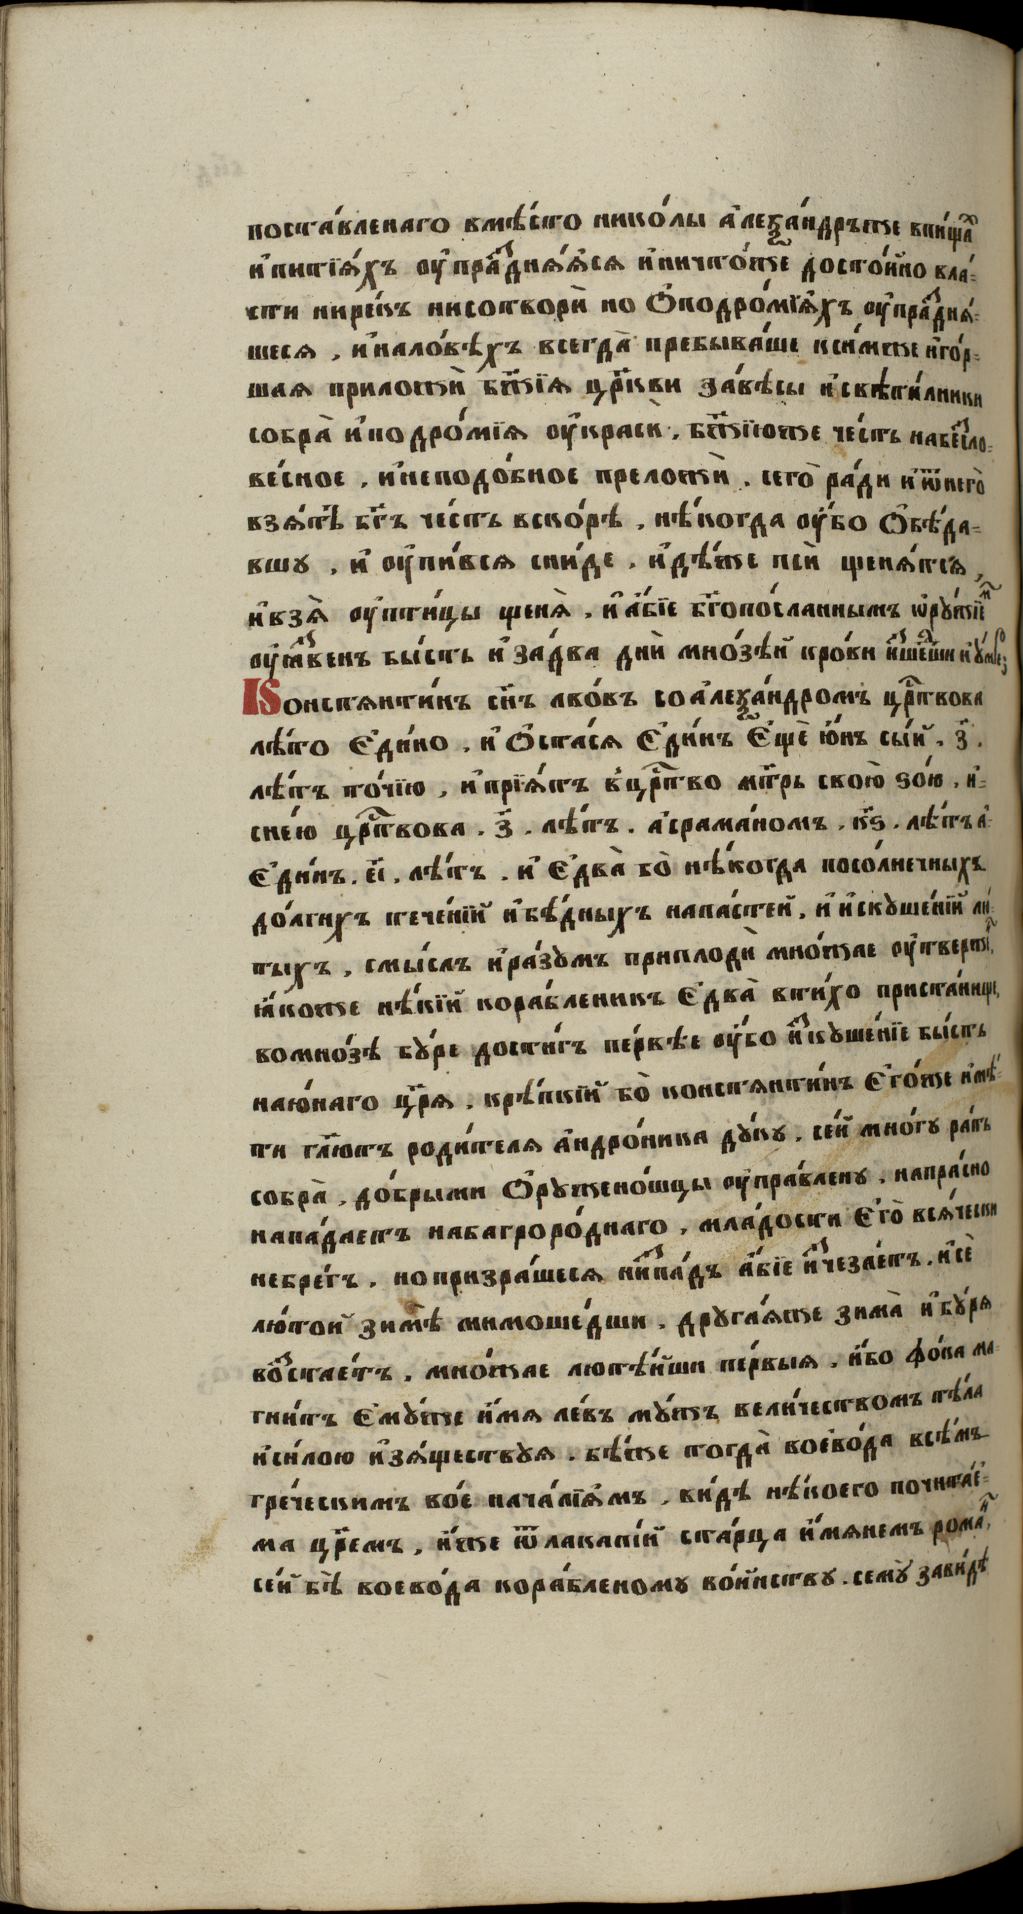 поста́вленаго вмѣ́сто нико́лы а҆леѯа́ндръже впи́щаⷯ
и҆питїѧ́хъ ѹ҆праⷤдня́ѧся и҆ничто́же досто́йно вла́-
сти нирекъ нисотвори̇̀ но ѻ҆подро́мїѧхъ ѹ҆праⷤдня́-
шеся , и҆нало́вѣхъ всегда̀ пребыва́ше ксѝмже и҆го́р-
шая приложѝ бж҃їѧ цр҃кви заве́сы и҆свѣти́лники
собра̀ и҆подро́мїѧ ѹ҆красѝ . бж҃їюже че́сть набесло-
ве́сное , и҆неподо́бное преложѝ . сего̀ ра́ди и҆ѿнего̀
взѧ́тъ бг҃ъ че́сть вско́рѣ , нѣ́когда ѹ҆́бо ѻ҆бѣ́да-
вшу , и҆ ѹ҆пи́вся сни́де . и҆дѣ́же псѝ щеня́тся ,
и҆взѧ̀ ѹ҆пти́цы щеня̀ . и҆а́бїе бг҃опосла́ннымъ ѡ҆ру́жїеⷨ
ѹ҆ѧ́звенъ бы́сть и҆за́два днѝ мно́зѣй кро́ви и҆ⷥше́дши и҆у́мре
Констянти́нъ сн҃ъ льво́въ соа҆леѯа́ндромъ црⷭ҇твова
лѣ́то є҆ди́но . и҆ ѻ҆ста́ся є҆ди́нъ є҆щѐ ю҆́нъ сы́й . з҃ .
лѣ́тъ то́чїю , и҆прїѧ́тъ вцрⷭ҇тво мт҃рь свою̀ зо́ю . и҆-
сне́ю црⷭ҇твова . з҃ . лѣ́тъ . а҆срама́номъ . к҃ѕ . лѣ́тъ а҆-
є҆ди́нъ . е҃і . лѣ́тъ . и҆ є҆два̀ бо̀ нѣ́когда посо́лнечныхъ
до́лгихъ тече́нїй и҆бѣ́дныхъ напа́стей , и҆ и҆скуше́нїй лю́-
тыхъ , смы́слъ и҆ра́зумъ приплодѝ мно́жае ѹ҆тверже́ⷩ
ꙗ҆́коже нѣ́кїй кора́бленикъ є҆два̀ вти́хо приста́нище ,
вомно́зѣ бу́ре дости́гъ пе́рвѣе ѹ҆́бо и҆ⷥкуше́нїе бы́сть
наю́наго цр҃ѧ . крѣ́пкїй бо̀ констянти́нъ є҆го́же и҆мѣ́-
ти гл҃ютъ роди́теля а҆ндро́ника ду́ку . се́й мно́гу ра́ть
собра̀ . до́брыми ѻ҆руженосцы ѹ҆пра́влену . напра́сно
напа́даетъ набагроро́днаго . мла́дости є҆го̀ вся́чески
небре́гъ . нопризра́шеся ни́ⷥпа́дъ а҆́бїе и҆ⷥчеза́етъ . и҆сѐ
лю́той зимѣ̀ мимоше́дши . друга́яже зима̀ и҆бу́ря
воⷥстае́тъ . мно́жае лютѣ́йши пе́рвыя . и҆́бо фо́ка ма-
гни́тъ є҆му́же и҆́мя ле́въ му́жъ вели́чествомъ тѣ́ла
и҆си́лою и҆зя́ществуя . бѣ́же тогда̀ воево́да всѣ́мъ
гре́ческимъ во́е нача́лїѧмъ , ви́дѣ нѣ́коего почита́е-
ма цр҃емъ , и҆́же ѿлакапі́й ста́рца и҆́мянемъ рома́ⷩ
се́й бѣ̀ воево́да кора́бленому во́йнству . сему̀ зави́дѣ